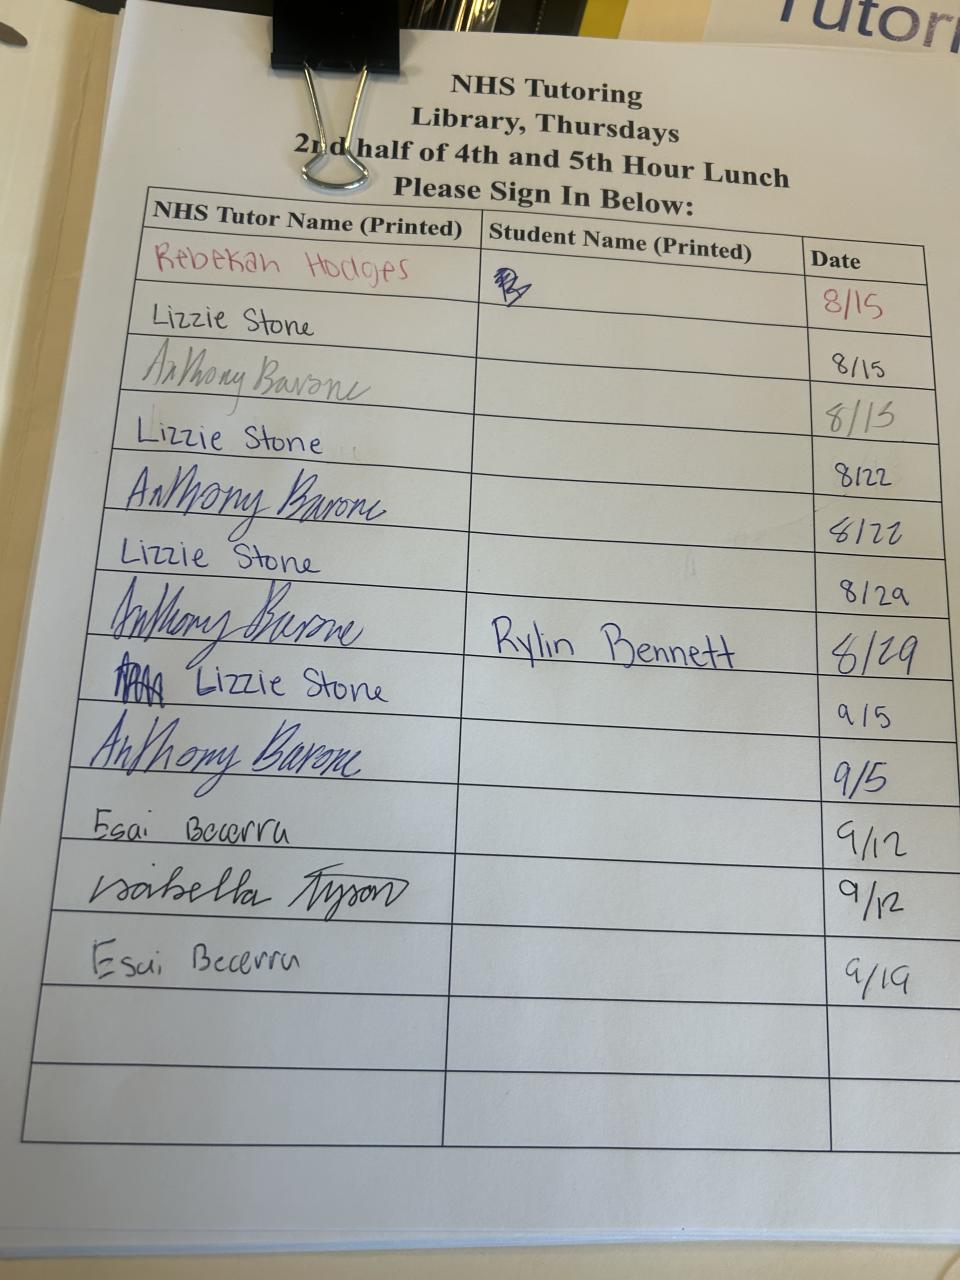 Tutori
NHS Tutoring
Library, Thursdays
2nd half of 4th and 5th Hour Lunch
Please Sign In Below:
NHS Tutor Name (Printed) Student Name (Printed) Date
Rebekah Hodges 8/15
Lizzie Stone 8/15
Anthony Barone 8/15
Lizzie Stone 8/22
Anthony Barone 8/22
Lizzie Stone 8/29
Anthony Barone Rylin Bennett 8/29
Lizzie Stone 9/5
Anthony Barone 9/5
Esai Becerra 9/12
Isabella Tyson 9/12
Esai Becerra 9/19